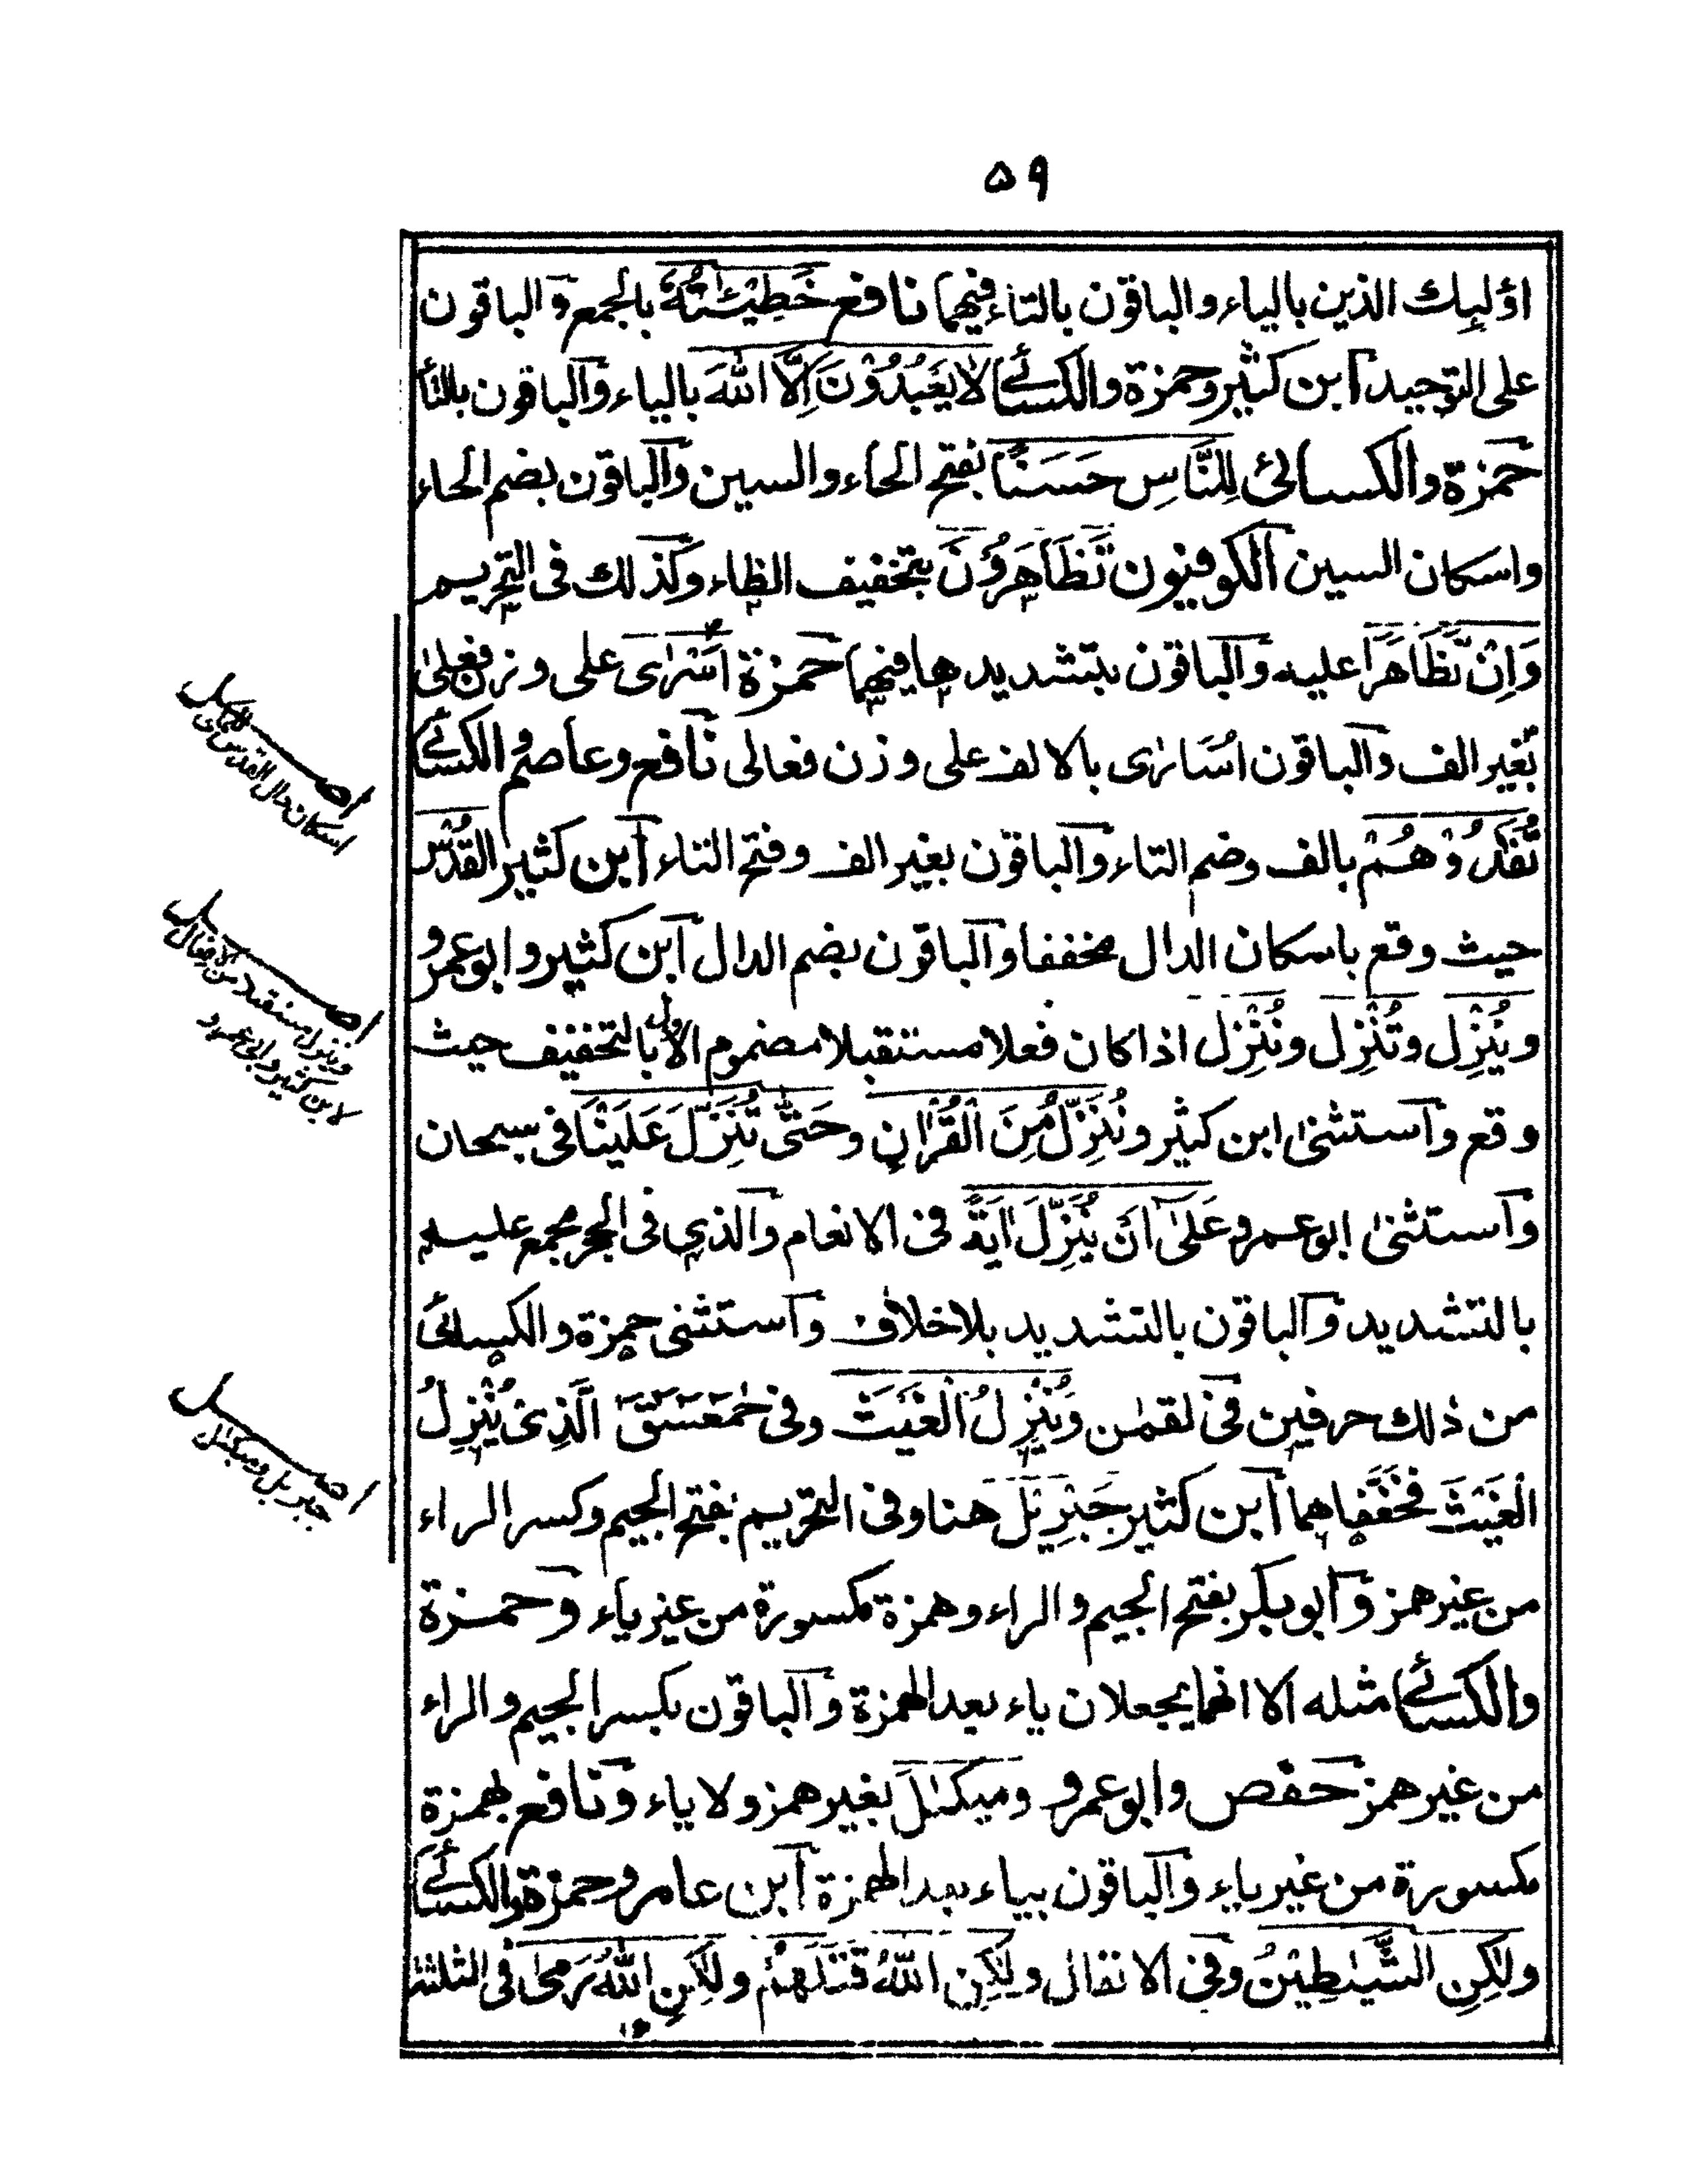 ٥٩
اؤلٰٓئِك الذين بالياء والباقون بالتاء فيهما نافع خَطِيْـٰٔتُهٗ بالجمع والباقون
على التوحيد ابن كثير وحمزة والكسائى لَا يَعْبُدُوْنَ اِلَّا اللّٰهَ بالياء والباقون بالتاء
حمزة والكسائى لِلنَّاسِ حَسَنًا بفتح الحاء والسين والباقون بضم الحاء
واسكان السين الكوفيون تَظَاهَرُوْنَ بتخفيف الظاء وكذلك فى التحريم
وَاِنْ تَظَاهَرَا عليه والباقون بتشديدها فيهما حمزة اَسْرٰى على وزن فعلىٰ
بغير الف والباقون اُسَارٰى بالالف على وزن فعالى نافع وعاصم والكسائى
تُفٰدُوْهُمْ بالف وضم التاء والباقون بغير الف وفتح التاء ابن كثير القُدْس
حيث وقع باسكان الدال مخففا والباقون بضم الدال ابن كثير وابو عمرو
ويُنْزِل وتُنْزِل ونُنْزِل اذا كان فعلا مستقبلا مضموم الاول بالتخفيف حيث
وقع واستثنىٰ ابن كثير ونُنَزِّلُ مِنَ الْقُرْاٰنِ وحَتّٰى تُنَزِّلَ عَلَيْنَا فى سبحان
واستثنىٰ ابو عمرو عَلٰى اَنْ يُنَزِّلَ اٰيَةً فى الانعام والذى فى الحجر مجمع عليه
بالتشديد والباقون بالتشديد بلا خلاف واستثنى حمزة والكسائى
من ذلك حرفين فى لقمٰن وَيُنْزِلُ الْغَيْثَ وفى حٰمٓعٓسٓقٓ الَّذِىْ يُنْزِلُ
الْغَيْثَ فخَفَّفاهما ابن كثير جَبْرِيْلَ هنا وفى التحريم بفتح الجيم وكسر الراء
من غير همز وابو بكر بفتح الجيم والراء وهمزة مكسورة من غير ياء وحمزة
والكسائى مثله الا انهما يجعلان ياء بعد الهمزة والباقون بكسر الجيم والراء
من غير همز حفص وابو عمرو وميكٰىلَ بغير همز ولا ياء ونافع بهمزة
مكسورة من غير ياء والباقون بياء بعد الهمزة ابن عامر وحمزة والكسائى
ولٰكِنِ الشَّيٰطِيْنُ وفى الانفال ولٰكِنِ اللّٰهُ قَتَلَهُمْ ولٰكِنِ اللّٰهُ رَمىٰ فى الثلثة
اصل
اسكان دال القدس
اصل
وينزل مستقبلا من الافعال
لابن كثير وابى عمرو
اصل
جبريل وميكٰىل